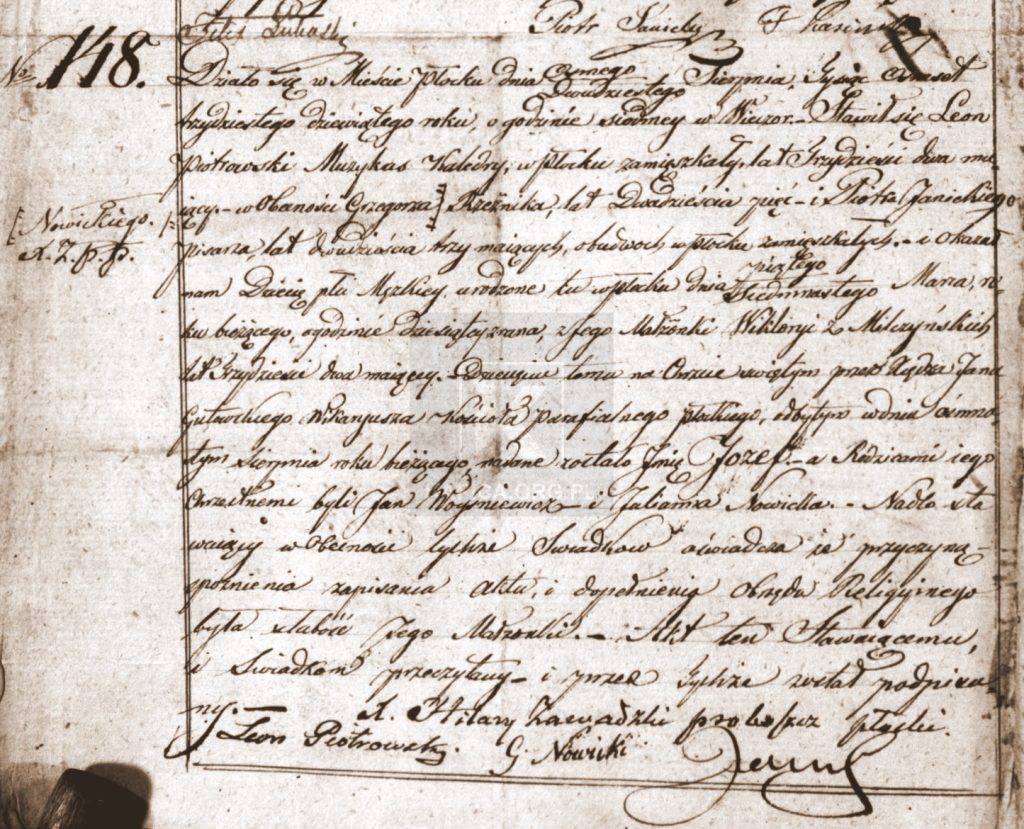 Piotr Janicki
No 148. Działo się w Mieście Płocku dnia ósmego Dwudziestego Sierpnia, Tysiąc osmset
trzydziestego dziewiątego roku, o godzinie siodmey w Wieczor. – Stawił się Leon
Piotrowski Muzykus Katedry, w płocku zamięszkały, lat Trzydzieści dwa ma
iący. – w Obecności Grzegorza Rzeźnika, lat Dwadzieścia pięć – i Piotra Janickiego
[Nowickiego. X. Z. p. p.
pisarza, lat dwadzieścia trzy maiących, obudwoch w płocku zamięszkałych. – i okazał
nam Dziecię płci Męzkiey, urodzone tu w płocku dnia piątego Siedmnastego Marca, ro
ku bieżącego, o godzinie dziesiątey zrana, z jego Małżonki Wiktoryi z Milczyńskich
lat Trzydzieści dwa maiącey. – Dziecięciu temu na Chrzcie świętym przez Xiędza Jana
Wikaryusza Kościoła parafialnego płockiego, odbytym w dniu osmna
stym sierpnia roku bieżącego, nadane zostało Jmię Jozef. – a Rodzicami iego
Chrzestnemi byli Jan i Julianna Nowicka. – Nadto sta
waiący w Obecności tychże Swiadkow oświadcza że przyczyną
spoźnienia zapisania Aktu, i dopełnienia Obrzędu Religiynego
była słabość Jego Małżonki. – Akt ten Stawaiącemu,
i Swiadkom przeczytany – i przez Tychże został podpisa
ny. – X. Hilary Zawadzki proboszcz płocki.
Leon Piotrowski. G Nowicki